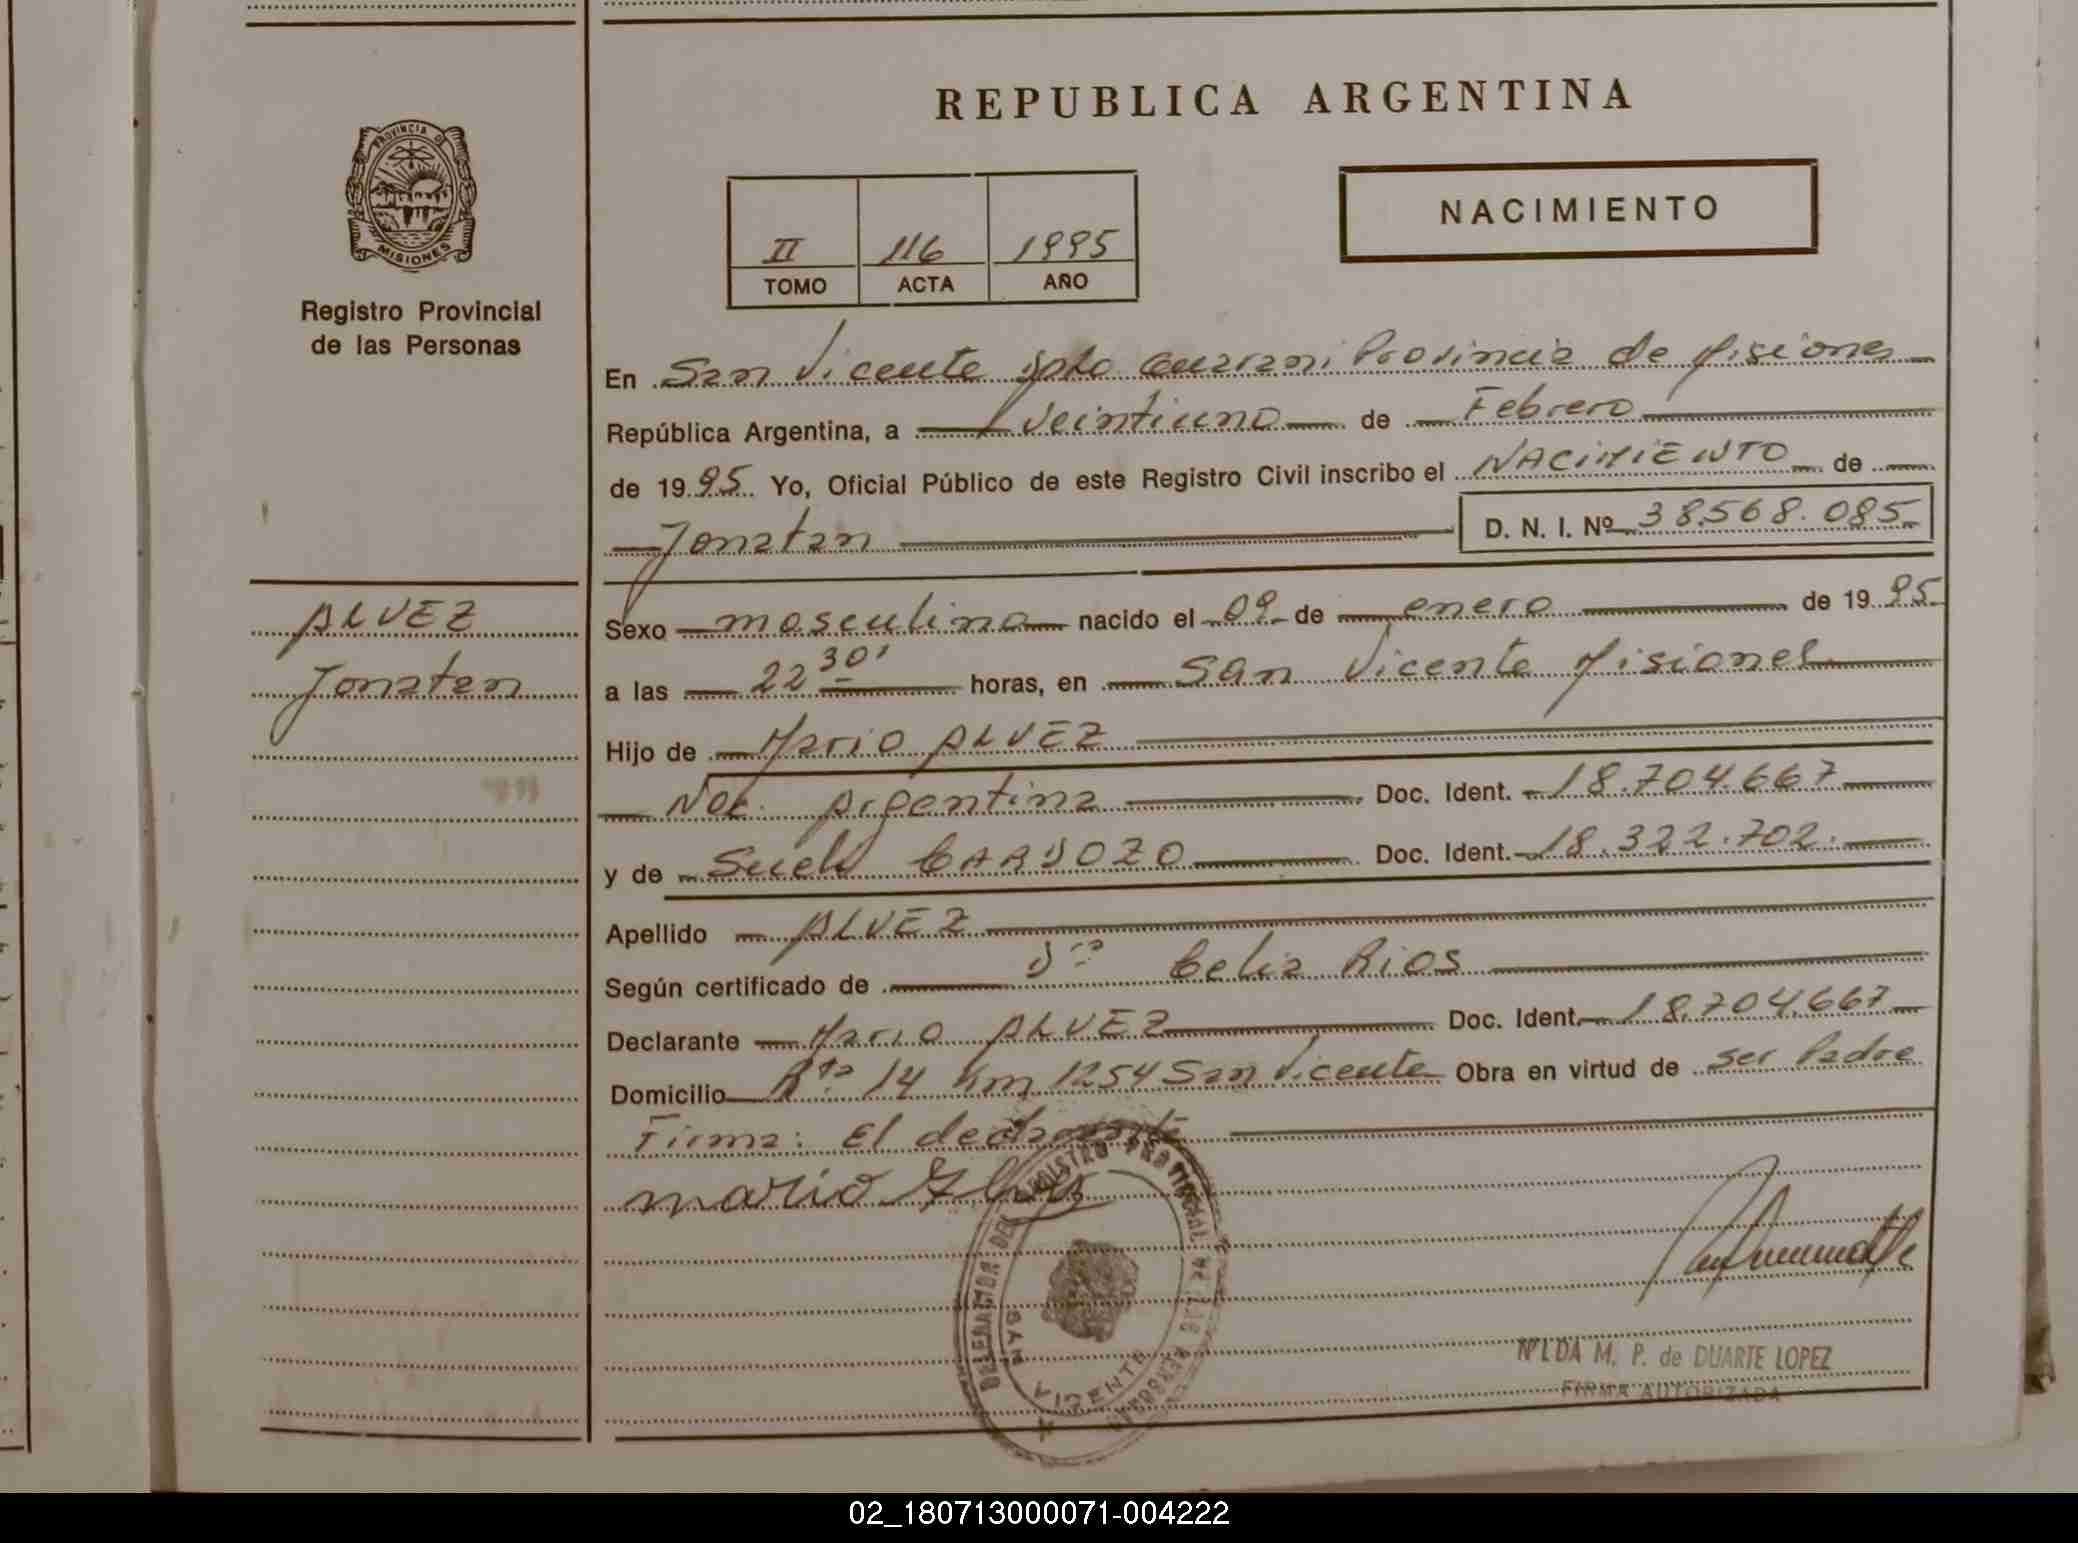 REPUBLICA ARGENTINA
PROVINCIA DE
MISIONES
Registro Provincial
de las Personas
II 116 1995
TOMO ACTA AÑO
NACIMIENTO
En San Vicente Dpto Guarani Provincia de Misiones
República Argentina, a veintiuno de Febrero
de 1995 Yo, Oficial Público de este Registro Civil inscribo el NACIMIENTO de
Jonatan D. N. I. Nº 38.568.085
ALVEZ
Jonatan
Sexo masculino nacido el 09 de enero de 1995
a las 22 30' horas, en San Vicente Misiones
Hijo de Mario ALVEZ
Nac. Argentina Doc. Ident. 18.704.667
y de Sueli CARDOZO Doc. Ident. 18.322.702.
Apellido ALVEZ
Según certificado de Dra Celia Rios
Declarante Mario ALVEZ Doc. Ident. 18.704.667
Domicilio Rta 14 Km 1254 San Vicente Obra en virtud de ser Padre
Firma: El declarante
mario
DELEGACION DEL REGISTRO PROVINCIAL DE LAS PERSONAS
SAN VICENTE
NILDA M. P. de DUARTE LOPEZ
FIRMA AUTORIZADA
02_180713000071-004222